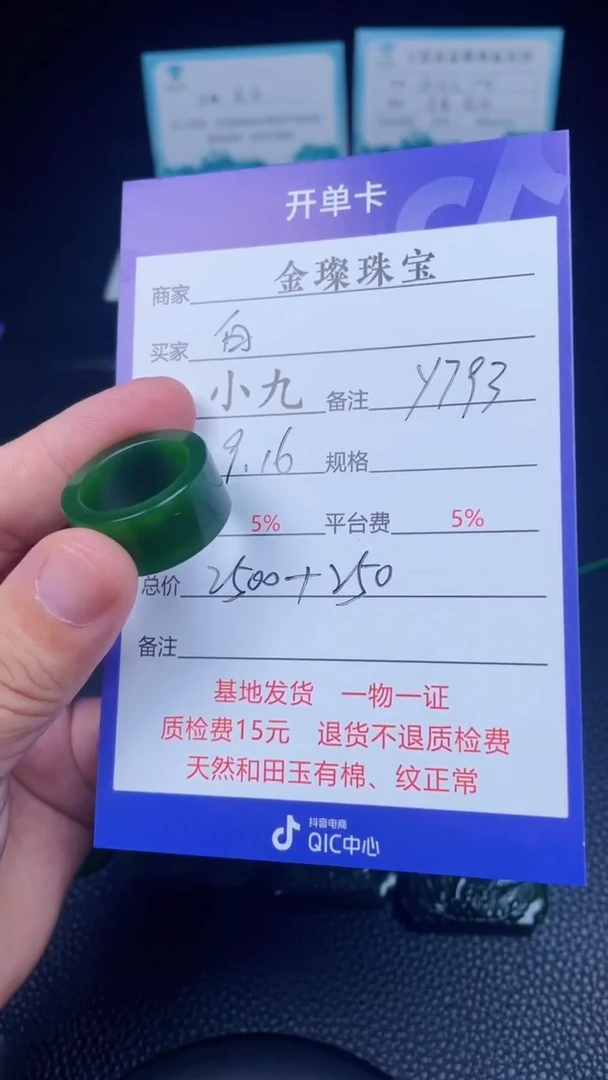 开单卡
商家 金璨珠宝
买家
小九 备注 Y793
9.16 规格
5% 平台费 5%
总价 2500+250
备注
基地发货 一物一证
质检费15元 退货不退质检费
天然和田玉有棉、纹正常
抖音电商
QIC中心